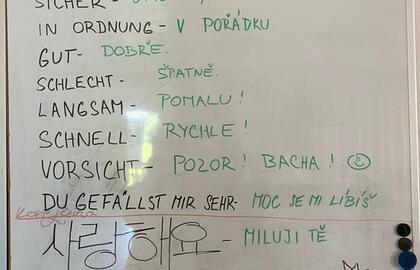 SICHER -
IN ORDNUNG - V POŘÁDKU
GUT - DOBŘE.
SCHLECHT - ŠPATNĚ.
LANGSAM - POMALU!
SCHNELL - RYCHLE!
VORSICHT - POZOR! BACHA! ☺
DU GEFÄLLST MIR SEHR - MOC SE MI LÍBÍŠ
사랑해요 - MILUJI TĚ